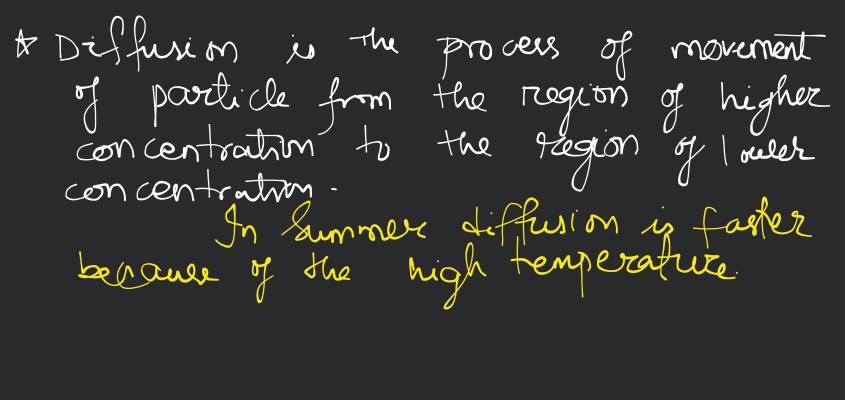 ☆ Diffusion is the process of movement
of particle from the region of higher
concentration to the region of lower
concentration.
In Summer diffusion is faster
because of the high temperature.